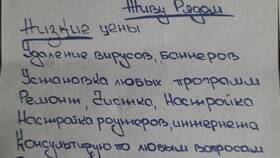 Живу Рядом
Низкие цены
Удаление вирусов, баннеров
Установка любых программ
Ремонт, Чистка, Настройка
Настройка роутеров, интернета
Консультирую по любым вопросам